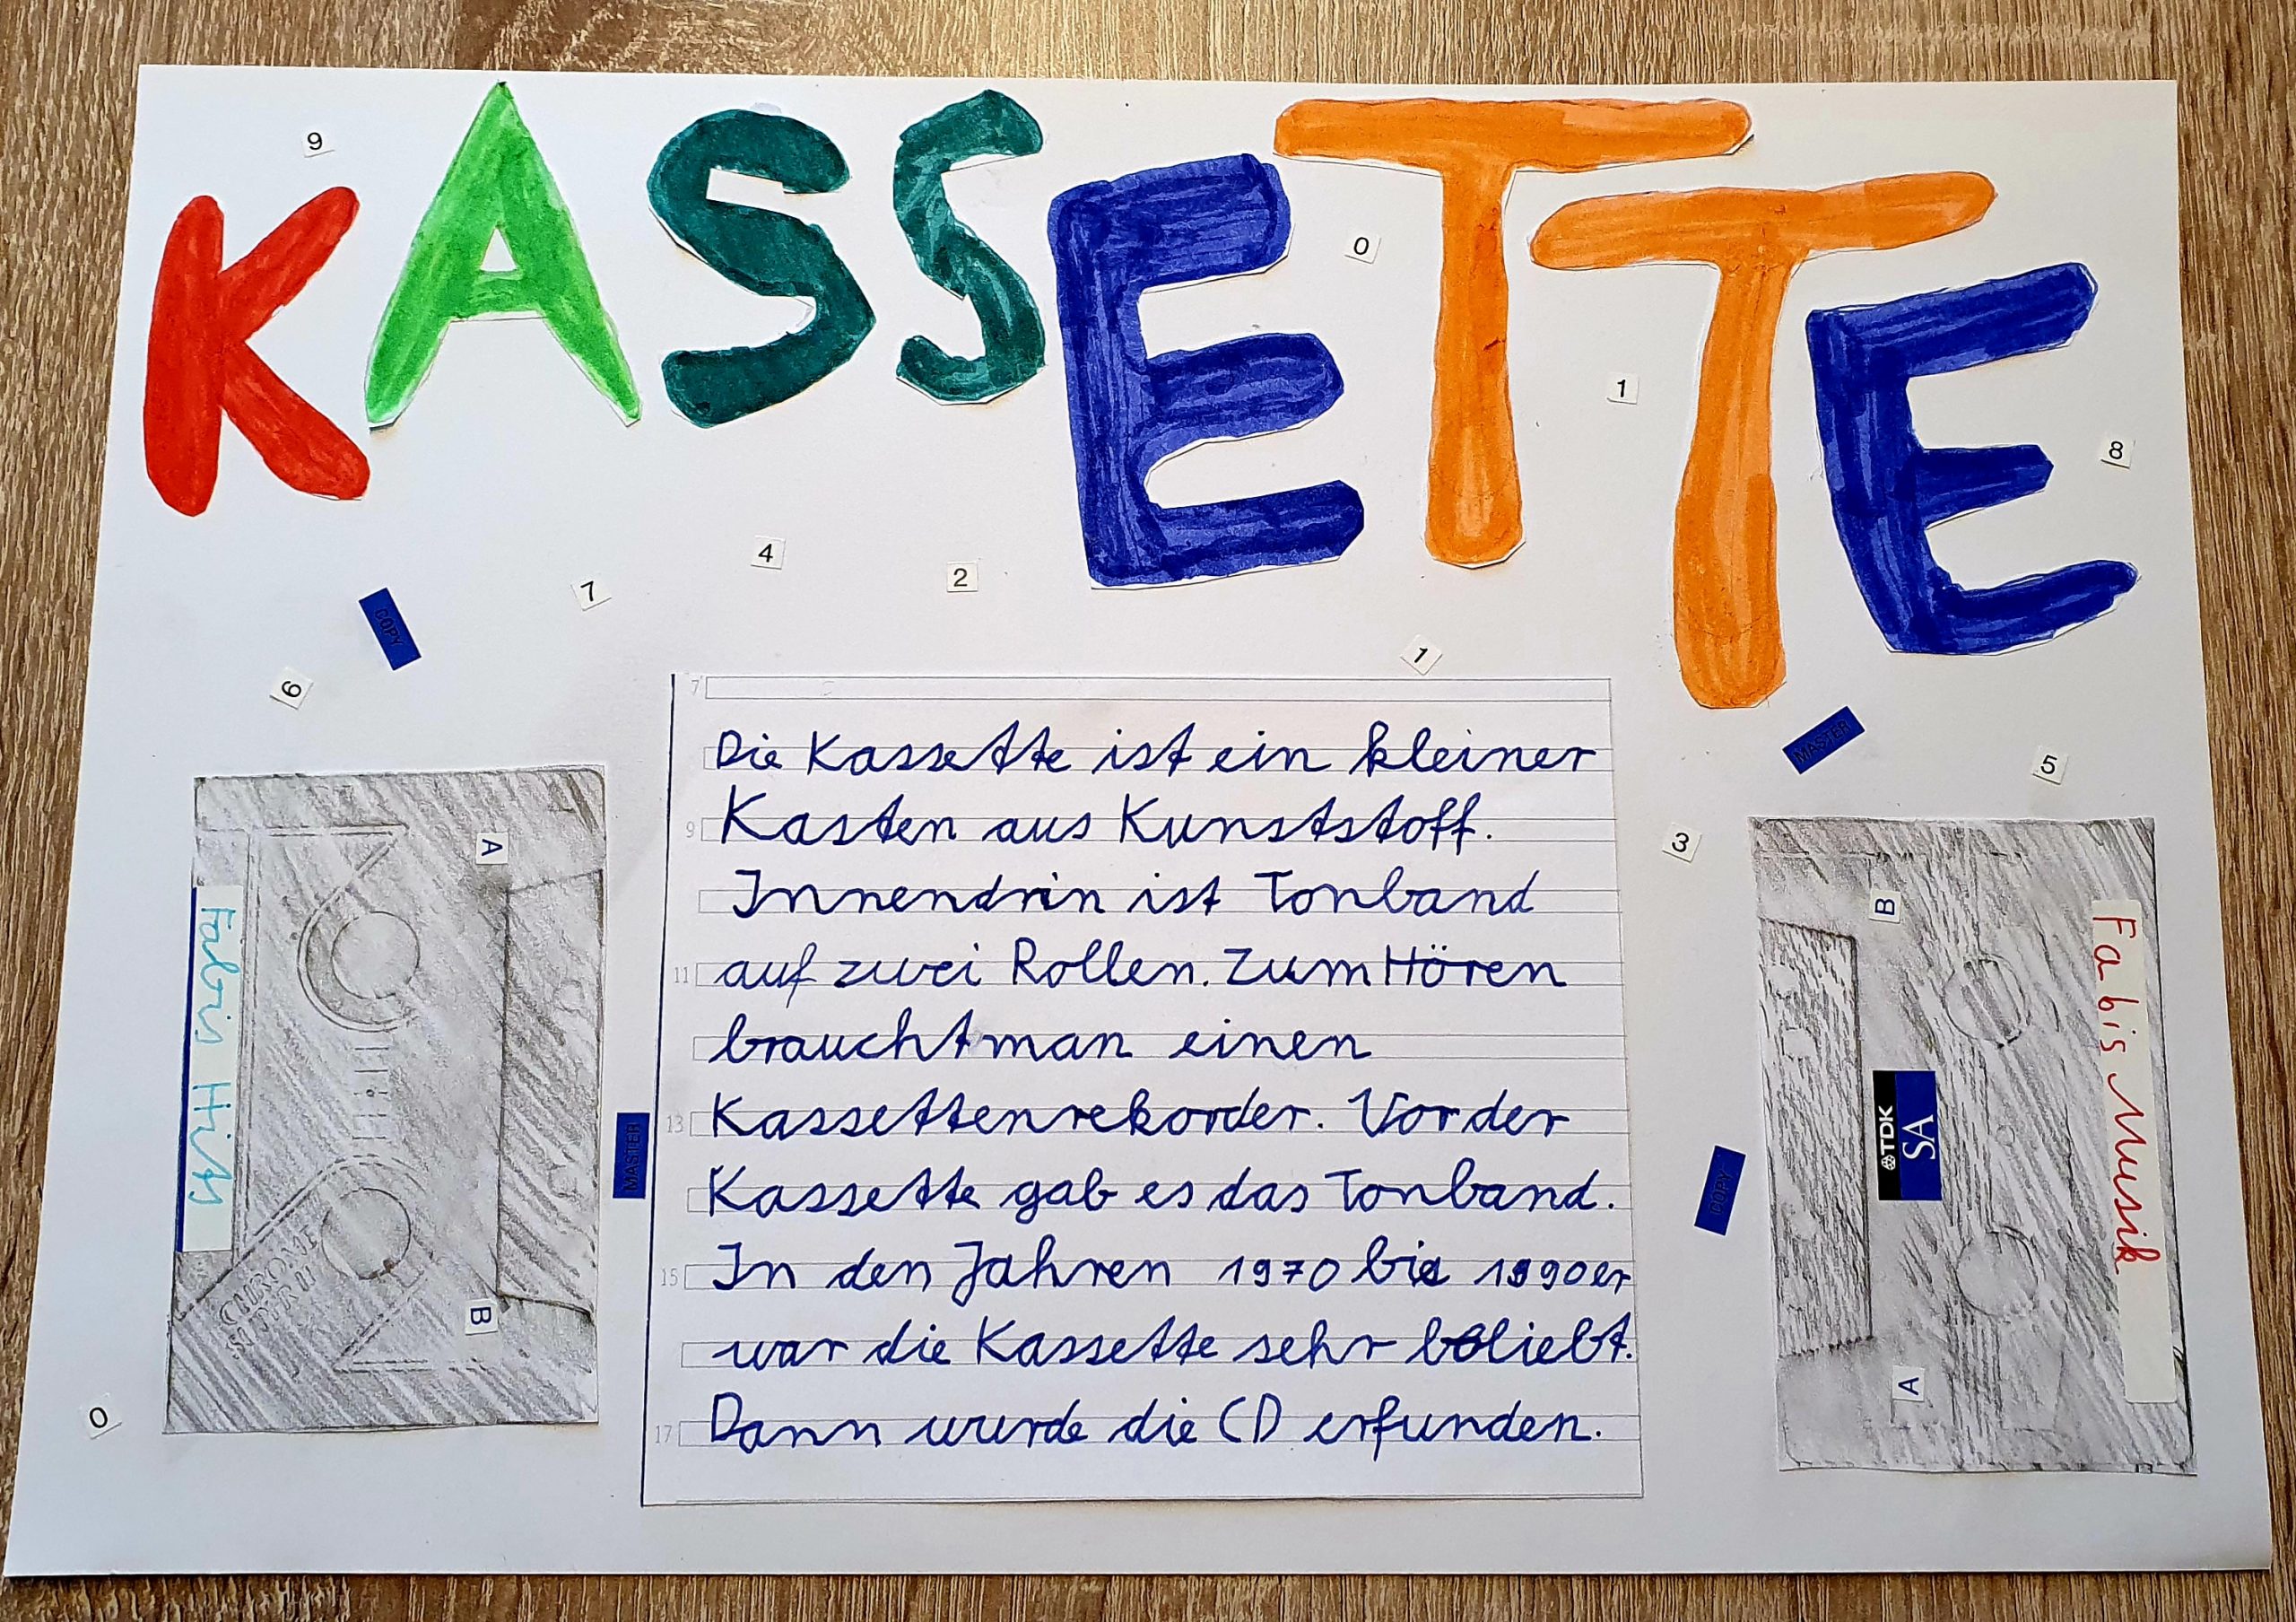 KASSETTE
9
0
1
8
4
2
7
COPY
1
6
MASTER
5
3
7
Die Kassette ist ein kleiner
9 Kasten aus Kunststoff.
Innendrin ist Tonband
11 auf zwei Rollen. Zum Hören
braucht man einen
13 Kassettenrekorder. Vor der
Kassette gab es das Tonband.
15 In den Jahren 1970 bis 1990er
war die Kassette sehr beliebt.
17 Dann wurde die CD erfunden.
A
Fabis Hits
CHROME
SUPER II
B
MASTER
0
B
Fabis Musik
TDK
SA
COPY
A